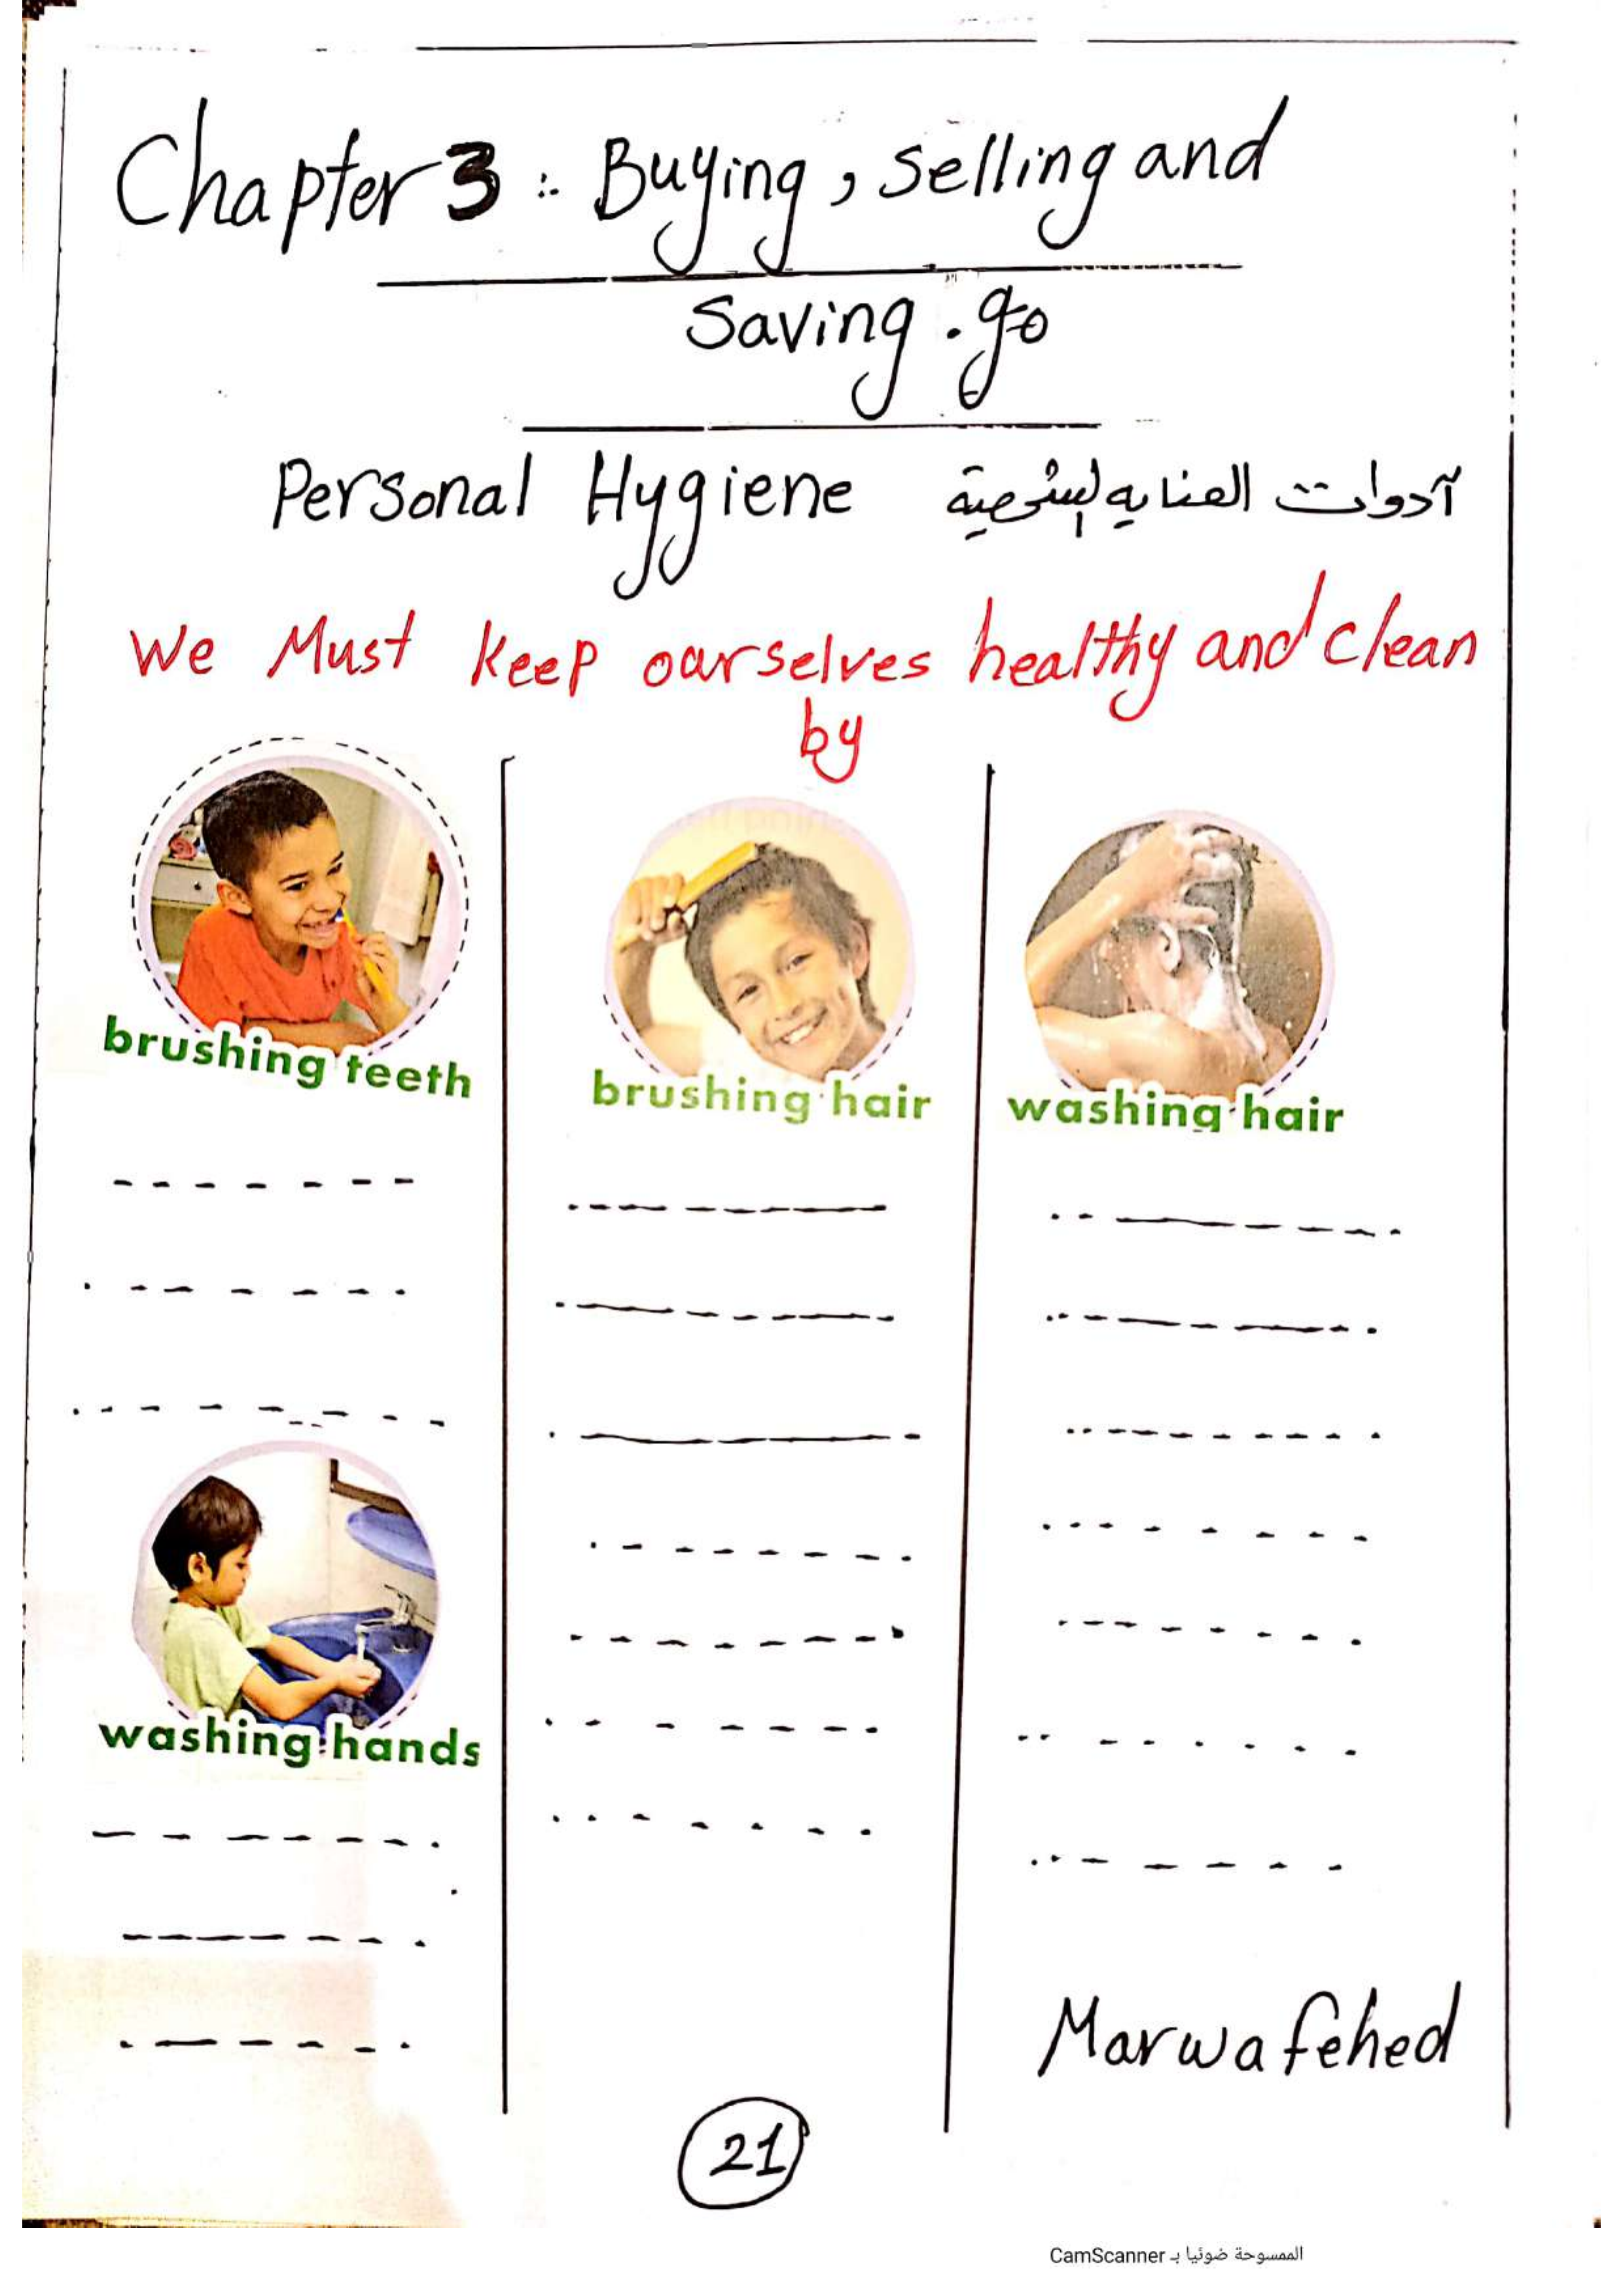 Chapter 3: Buying, selling and
Saving. go
Personal Hygiene آدوات العنايه لشخصية
We Must keep ourselves healthy and clean
by
brushing teeth
brushing hair
washing hair
washing hands
Marwa fehed
21
الممسوحة ضوئيا بـ CamScanner